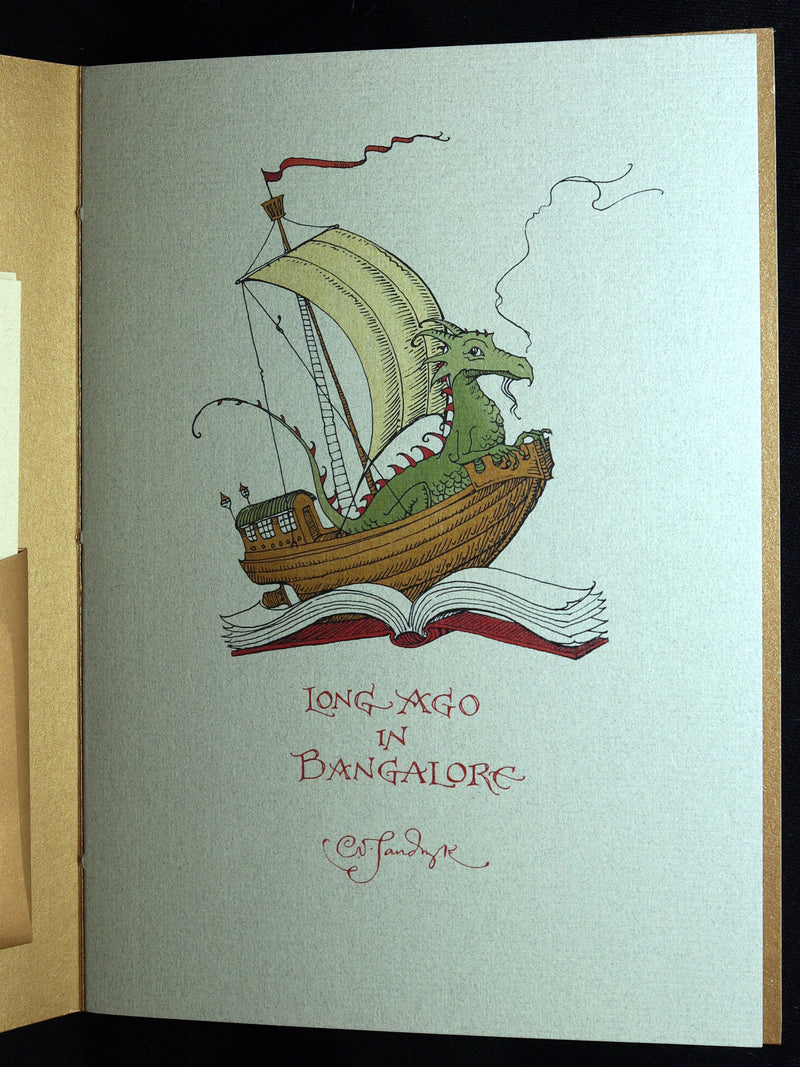 LONG AGO
IN
BANGALORE
C.V. Sandwyk